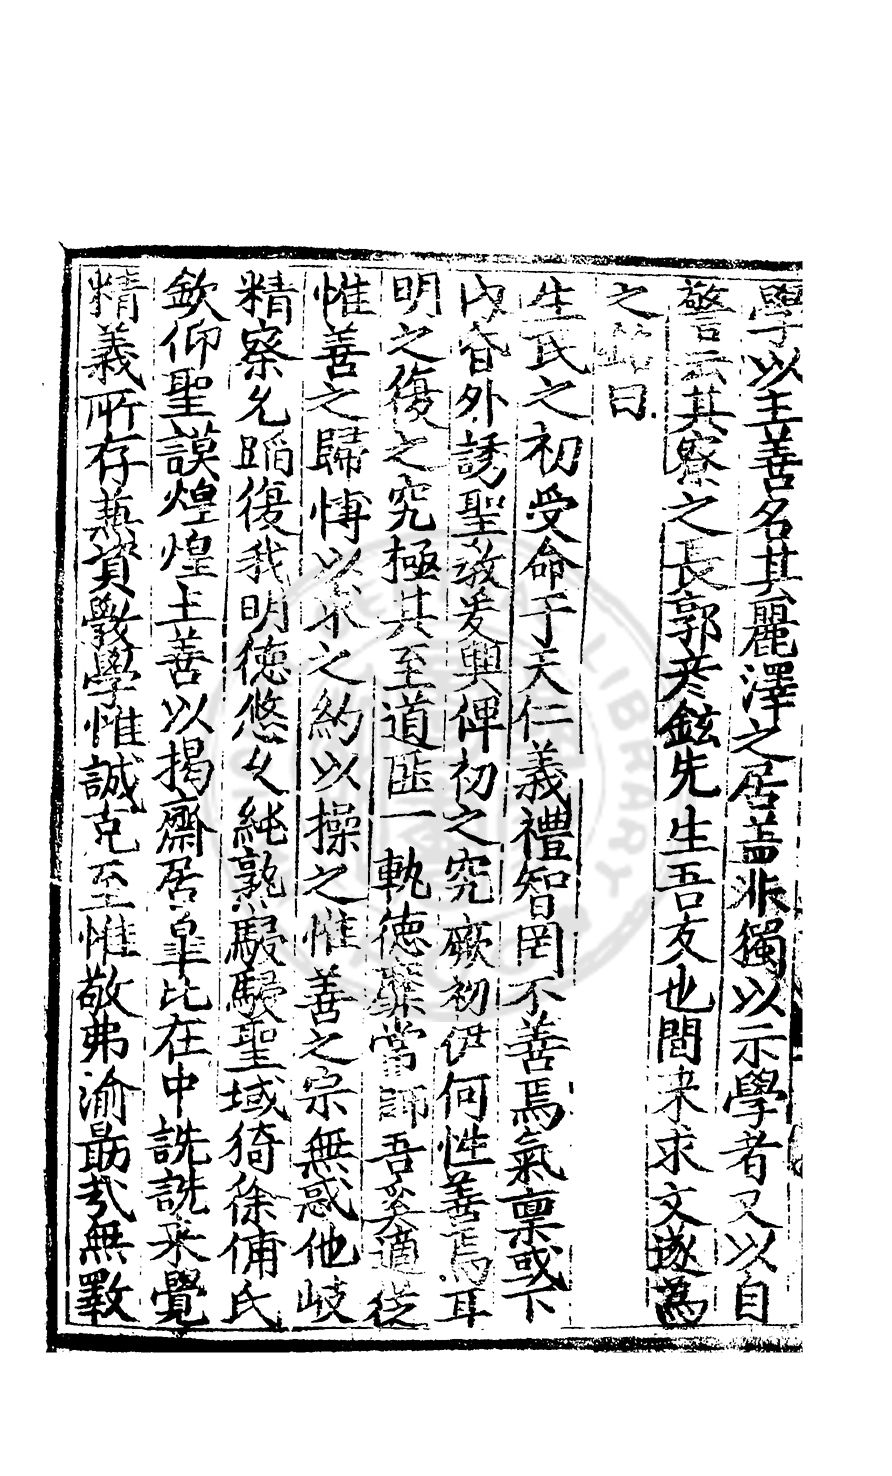 學以主善名其麗澤之居蓋非獨以示學者又以自
警云其寮之長郭彦鉉先生吾友也間来求文遂為
之銘曰
生民之初受命于天仁義禮智罔不善焉氣稟或下
内昏外誘聖教爰興俾初之究厥初伊何性善焉耳
明之復之究極其至道匪一軌德業當師吾奚適從
惟善之歸博以求之約以操之惟善之宗無惑他岐
精察允蹈復我明德悠久純熟駸駸聖域猗徐俌氏
欽仰聖謨煌煌主善以揭齋居皐比在中詵詵来覺
精義所存兼資斆學惟誠克至惟敬弗渝勗哉無斁